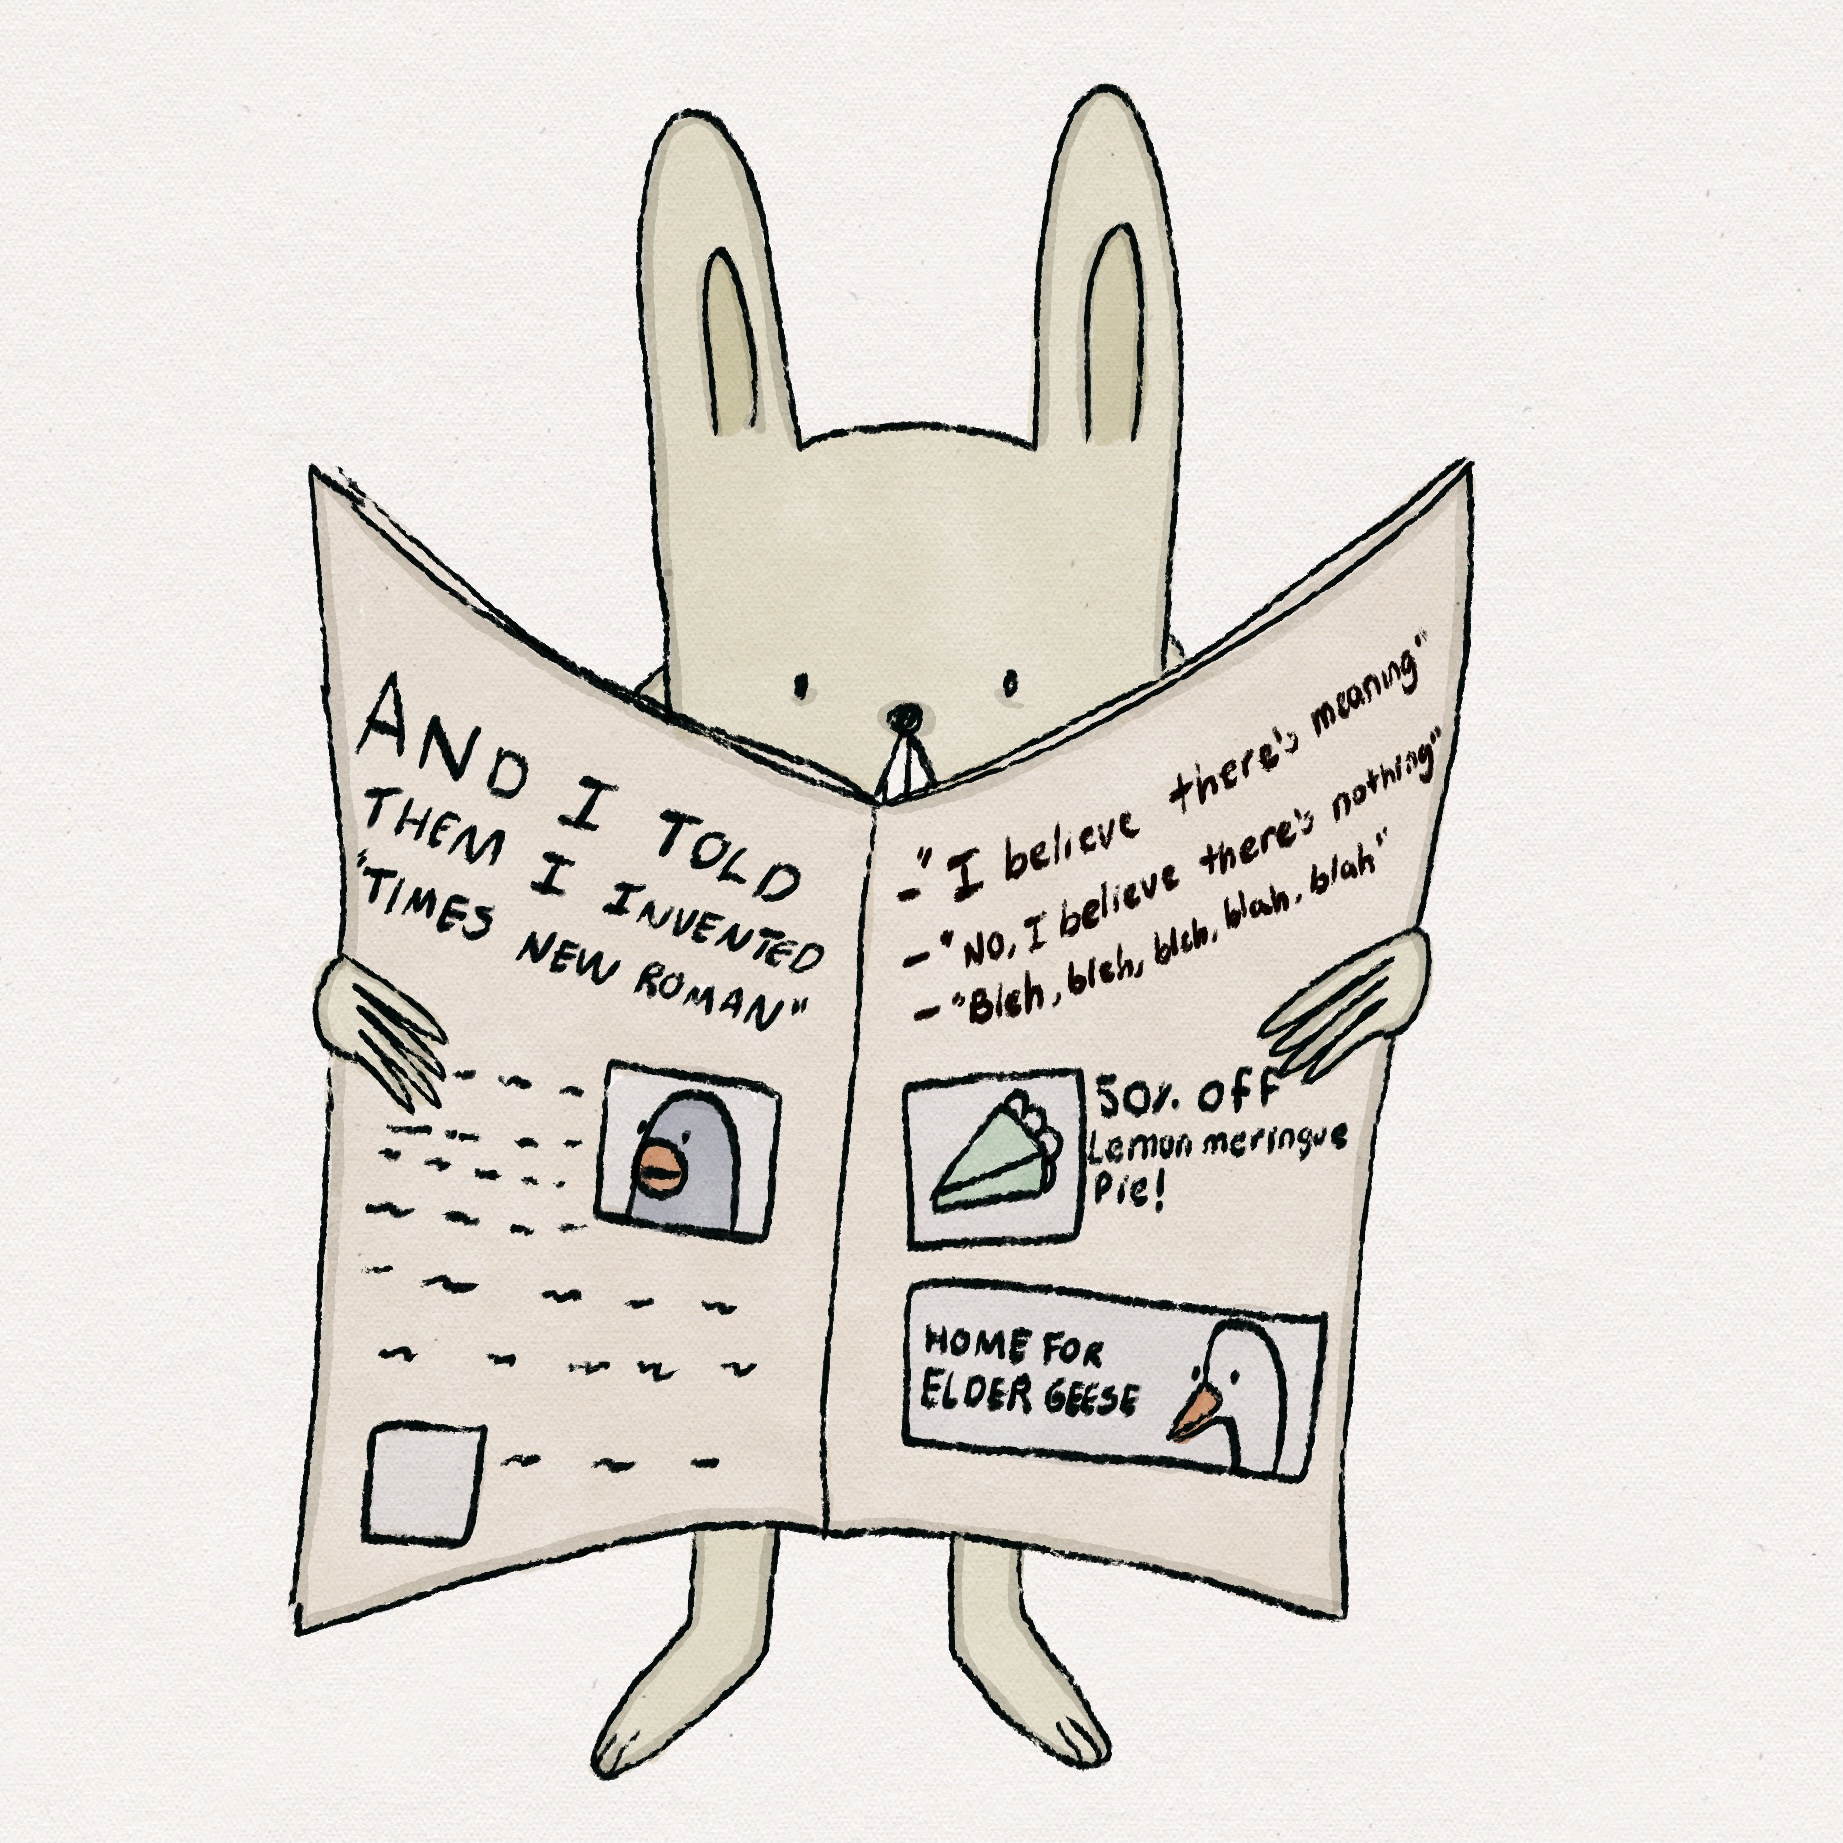 AND I TOLD
THEM I INVENTED
"TIMES NEW ROMAN"
-"I believe there's meaning"
-"NO, I believe there's nothing"
-"Bleh, bleh, bleh, blah, blah"
50% Off
Lemon meringue
Pie!
HOME FOR
ELDER GEESE